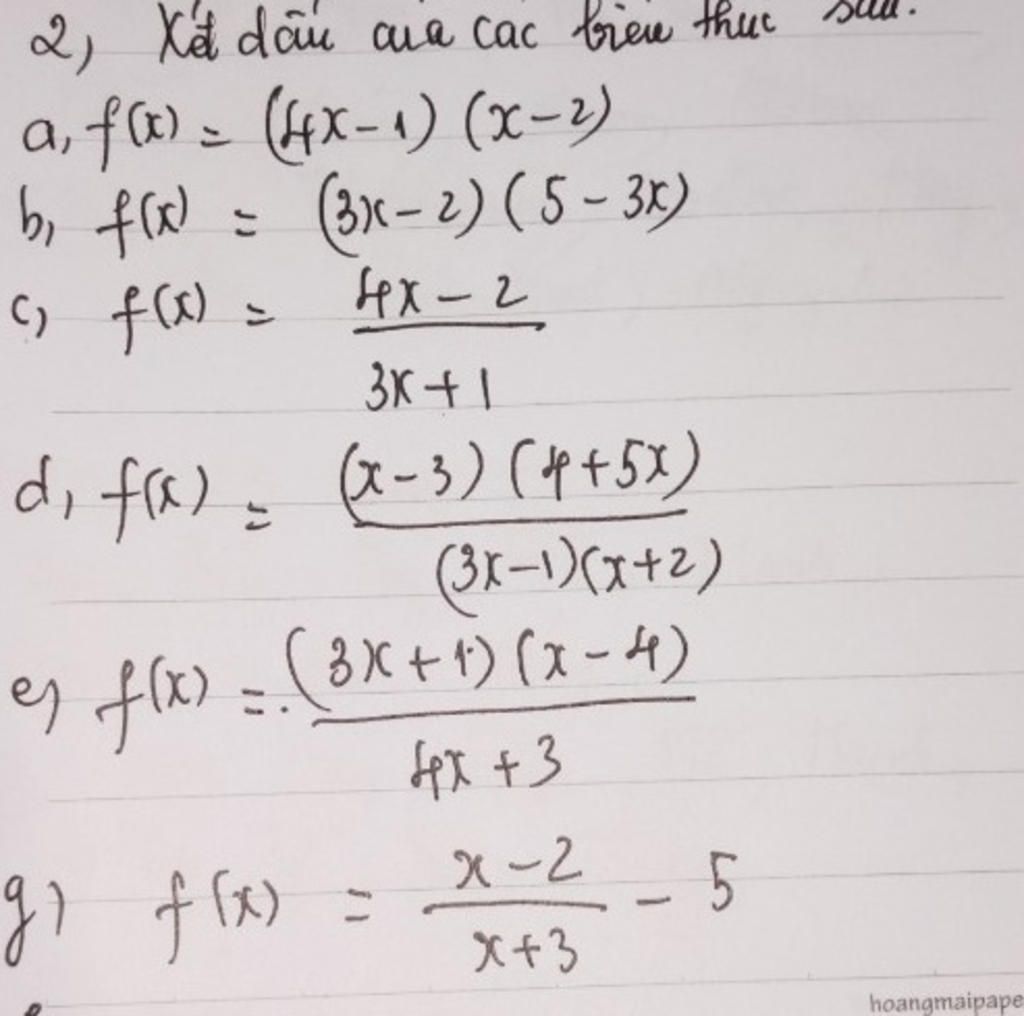 2, Xét dấu của các biểu thức sau:
a, f(x) = (4x-1) (x-2)
b, f(x) = (3x-2) (5-3x)
c, f(x) = 4x-2
3x+1
d, f(x) = (x-3) (4+5x)
(3x-1)(x+2)
e, f(x) = (3x+1) (x-4)
4x+3
g) f(x) = x-2 - 5
x+3
hoangmaipape